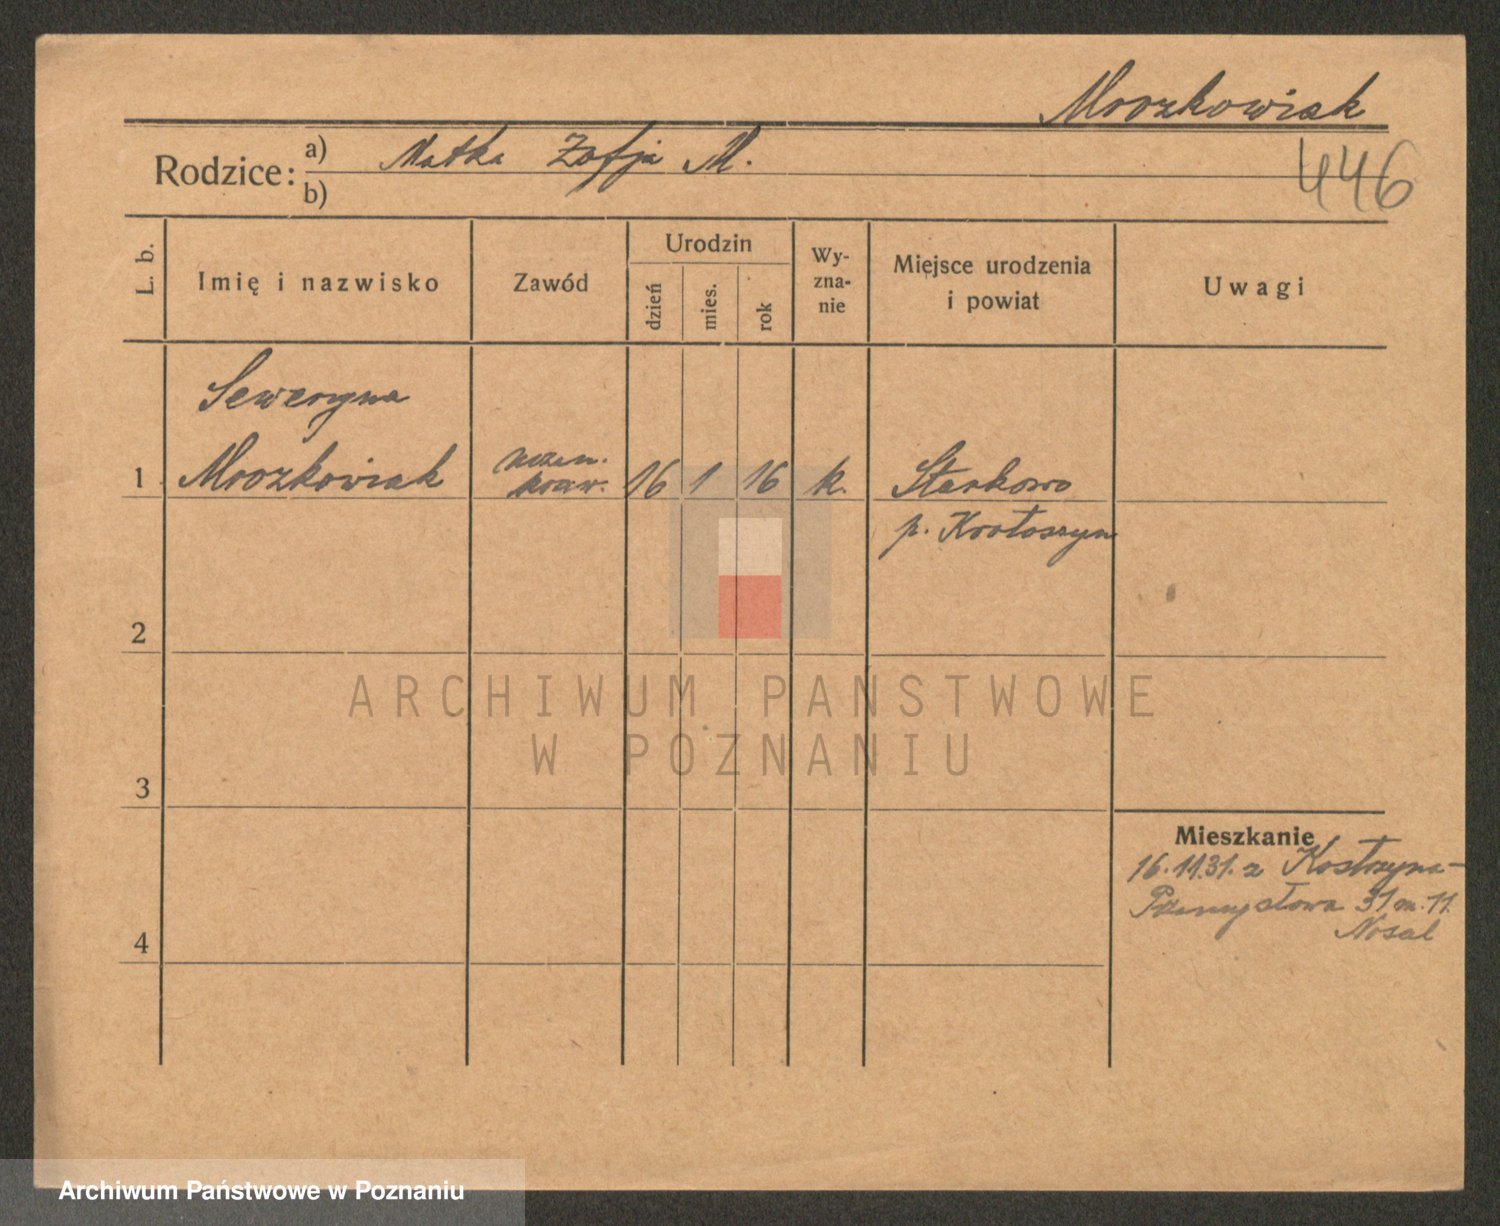 Mroczkowiak
446
Rodzice: a) Matka Zofja M.
b)
L. b.
Imię i nazwisko
Zawód
Urodzin
dzień
mies.
rok
Wy-
zna-
nie
Miejsce urodzenia
i powiat
Uwagi
Seweryna
1 Mroczkowiak uczen. kraw. 16 1 16 k. Starkowo
p. Krotoszyn
2
ARCHIWUM PANSTWOWE
W POZNANIU
3
Mieszkanie
16.11.31. z Kostrzyna-
Przemysłowa 31 m. 11.
Nosal
4
Archiwum Państwowe w Poznaniu